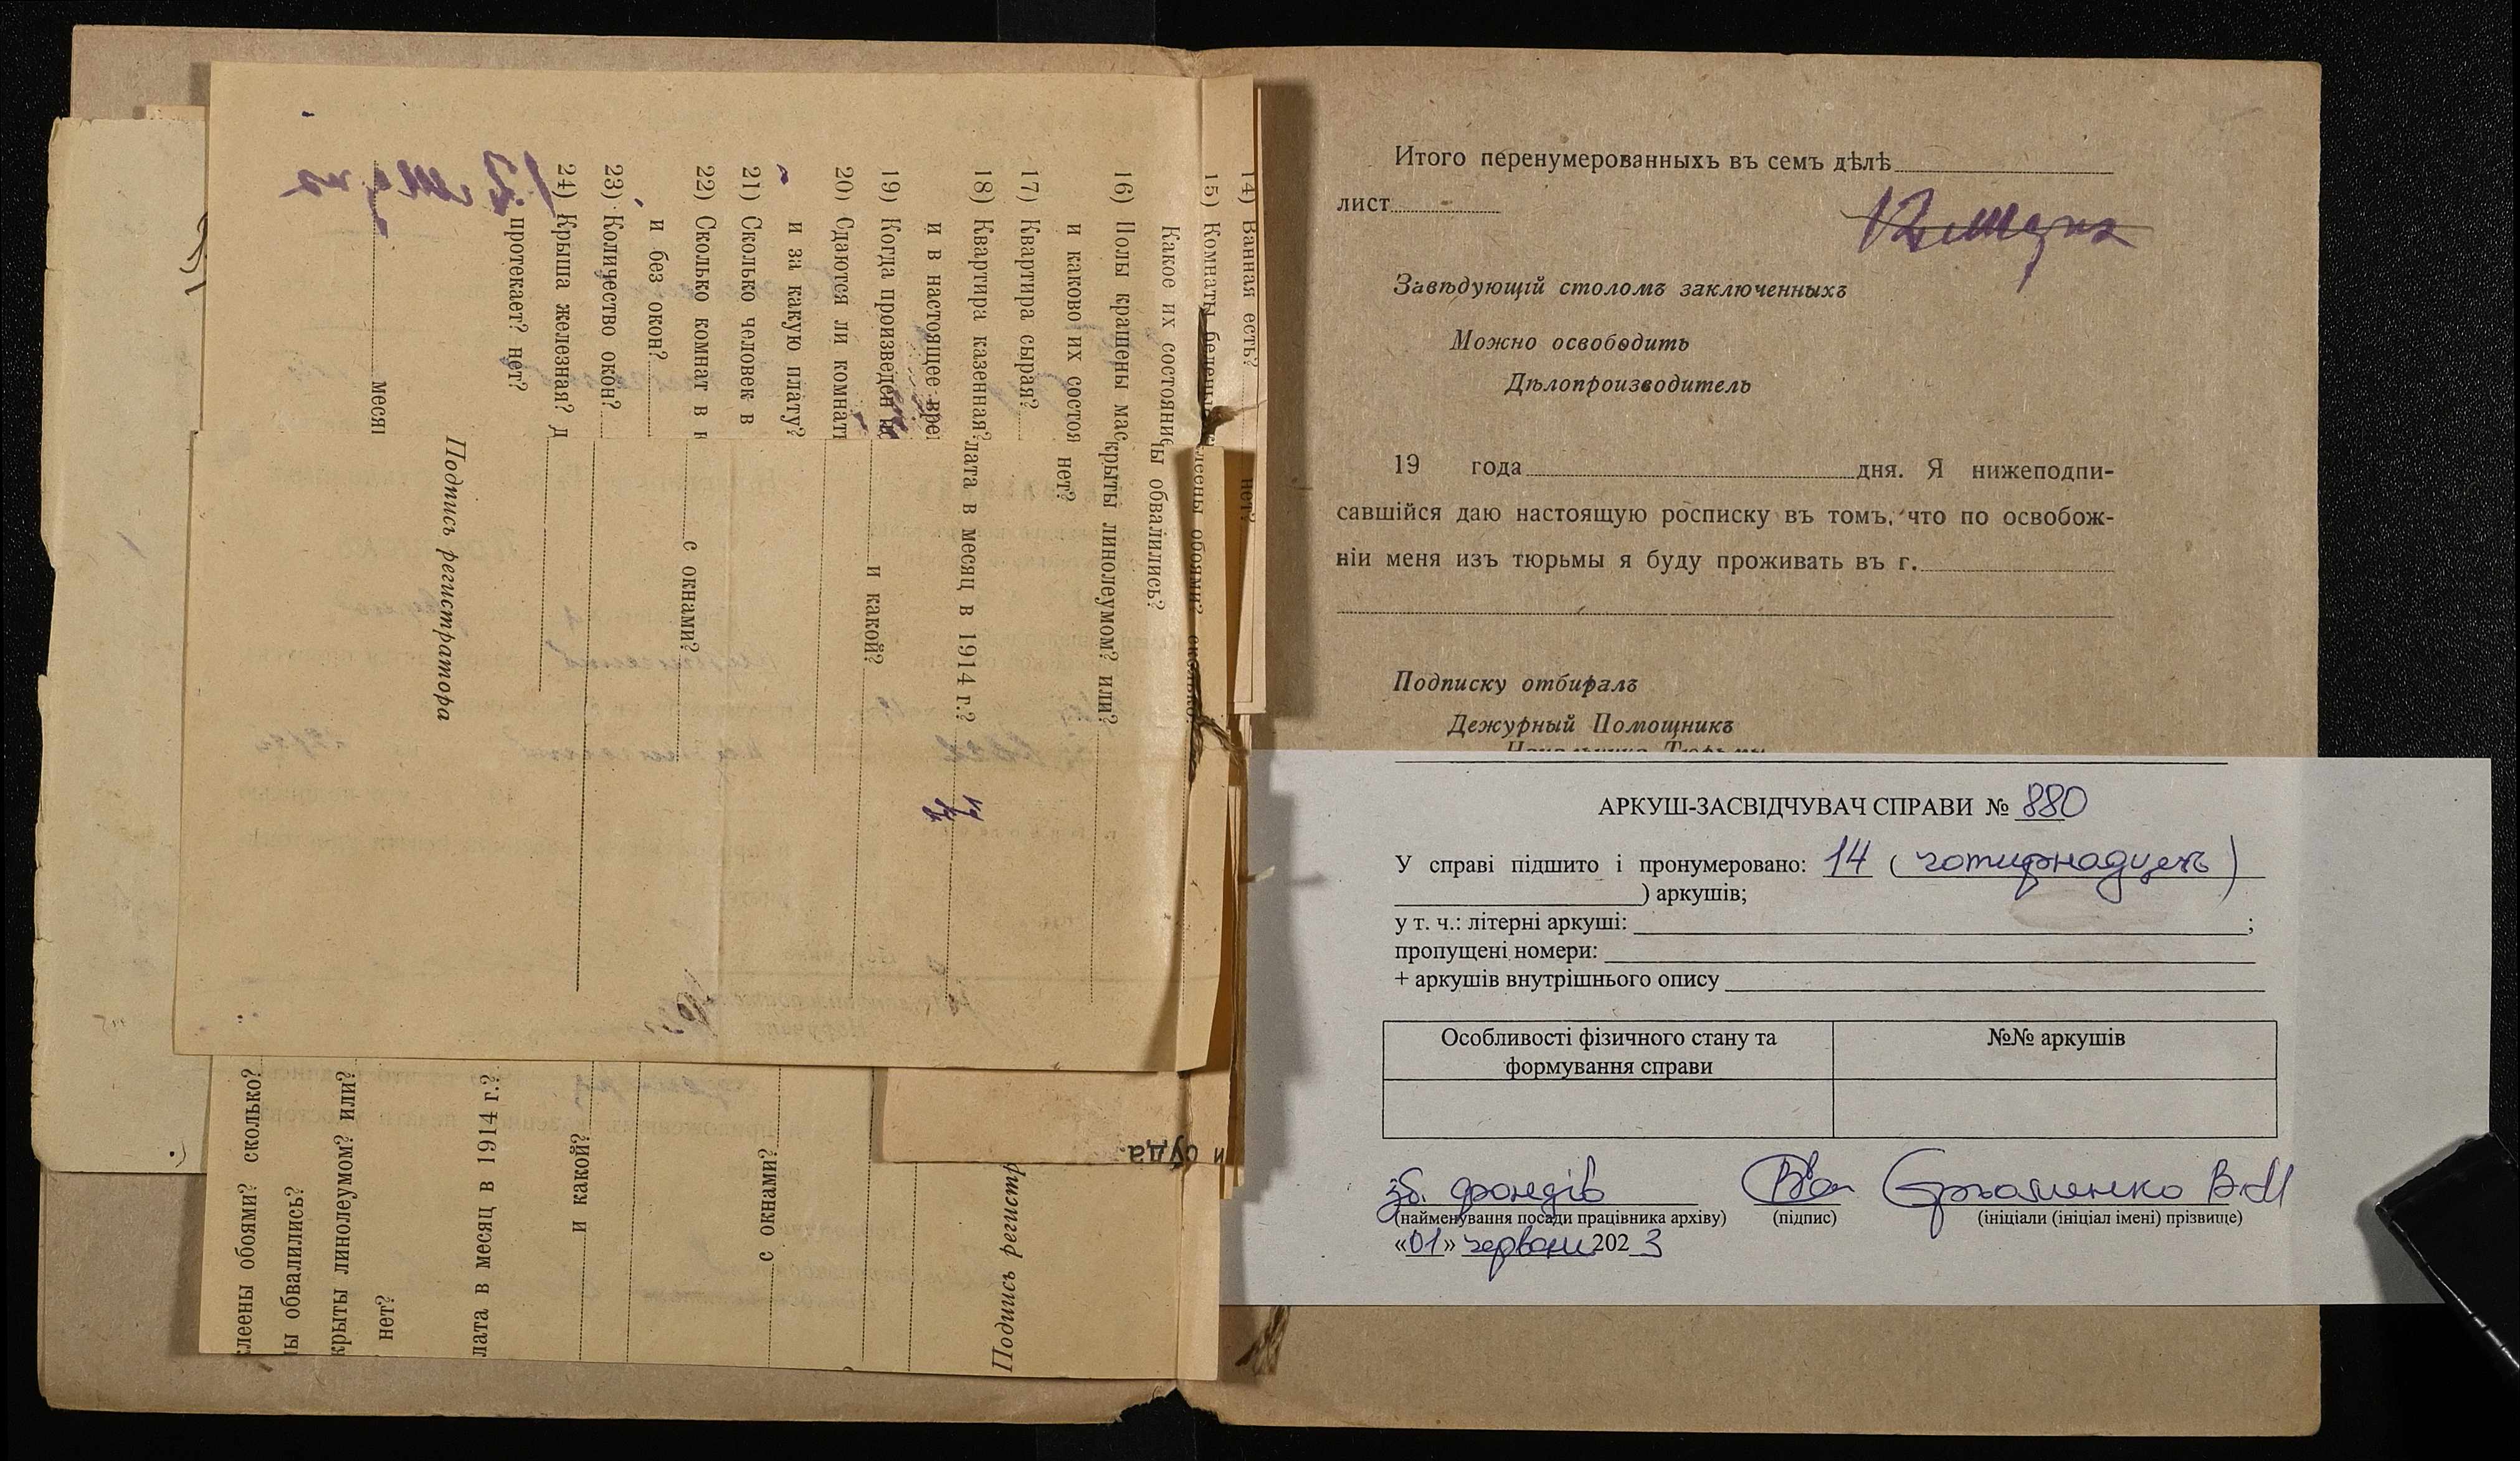 14) Ванная есть?
нет?
15) Комнаты белены
леены обоями? сколько?
Какое их состояние
ы обвалились?
16) Полы крашены мас
крыты линолеумом? или?
и каково их состоя
нет?
17) Квартира сырая?
18) Квартира казенная?
лата в месяц в 1914 г.?
и в настоящее вре
19) Когда произведен
и какой?
20) Сдаются ли комнат
и за какую плату?
21) Сколько человек в
22) Сколько комнат в
с окнами?
и без окон?
23) Количество окон?
24) Крыша железная? д
протекает? нет?
месяц
Подпись регистратора
клеены обоями? сколько?
ы обвалились?
крыты линолеумом? или?
нет?
лата в месяц в 1914 г.?
и какой?
с окнами?
Подпись регистр
и суда
Итого перенумерованныхъ въ семъ дѣлѣ
лист
Завѣдующій столомъ заключенныхъ
Можно освободить
Дѣлопроизводитель
19 года дня. Я нижеподпи-
савшійся даю настоящую росписку въ томъ, что по освобож-
ніи меня изъ тюрьмы я буду проживать въ г.
Подписку отбиралъ
Дежурный Помощникъ
Начальника Тюрьмы
АРКУШ-ЗАСВІДЧУВАЧ СПРАВИ № 880
У справі підшито і пронумеровано: 14 (чотирнадцять)
) аркушів;
у т. ч.: літерні аркуші: ;
пропущені номери:
+ аркушів внутрішнього опису
Особливості фізичного стану та
формування справи
№№ аркушів
зб. фондів
В.М
(найменування посади працівника архіву) (підпис) (ініціали (ініціал імені) прізвище)
«01» червня 2023